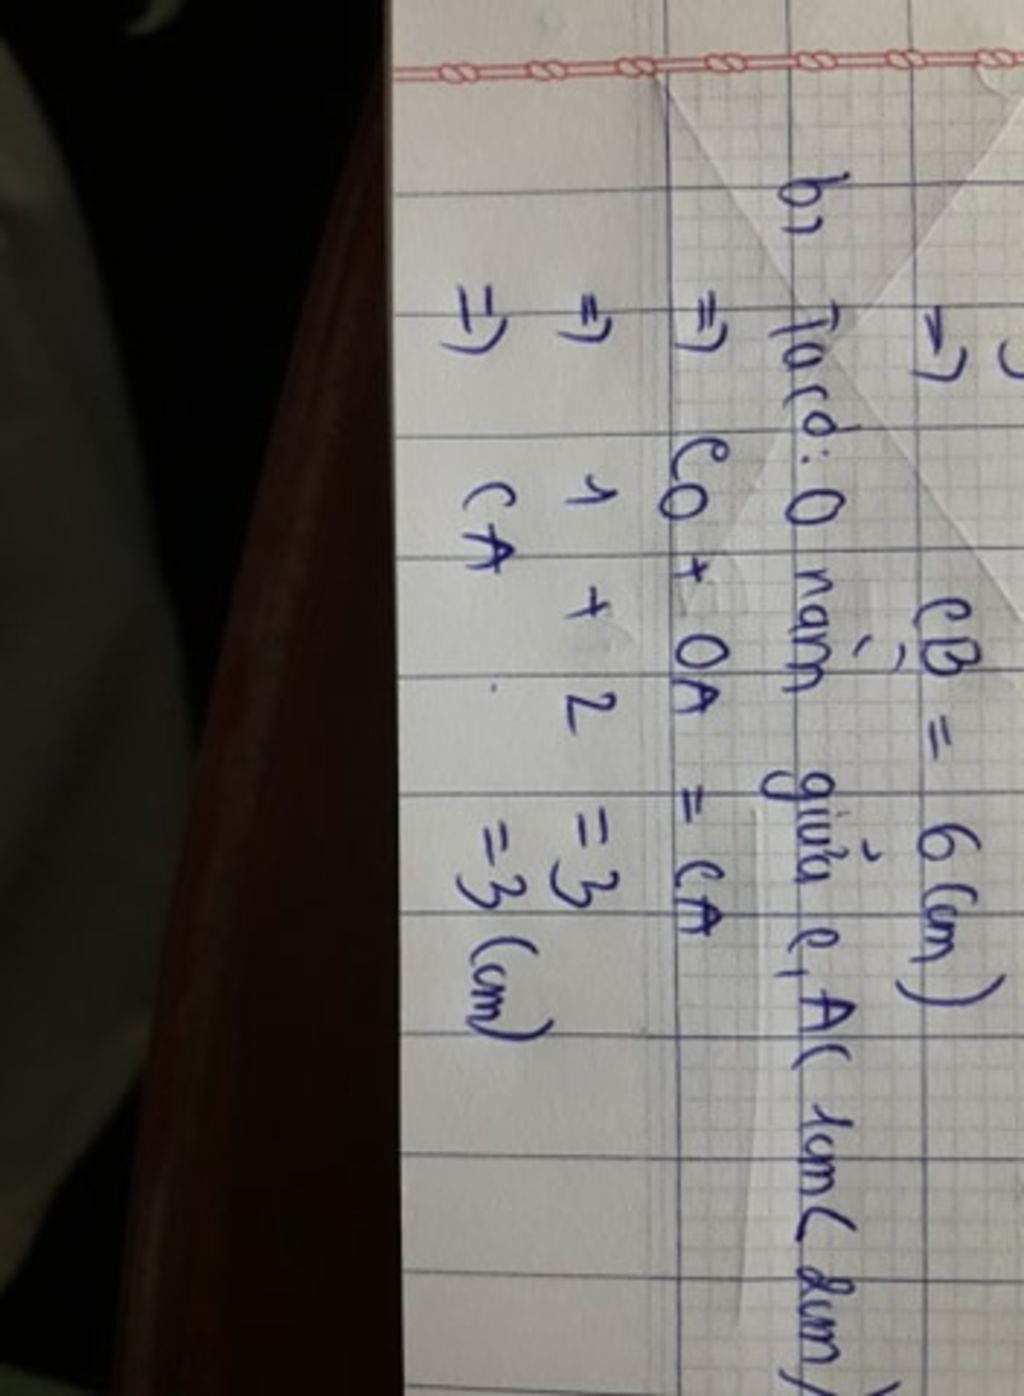 => CB = 6 (cm)
b) Ta có: O nằm giữa C, A ( 1cm < 2cm )
=> CO + OA = CA
=> 1 + 2 = 3
=> CA = 3 (cm)